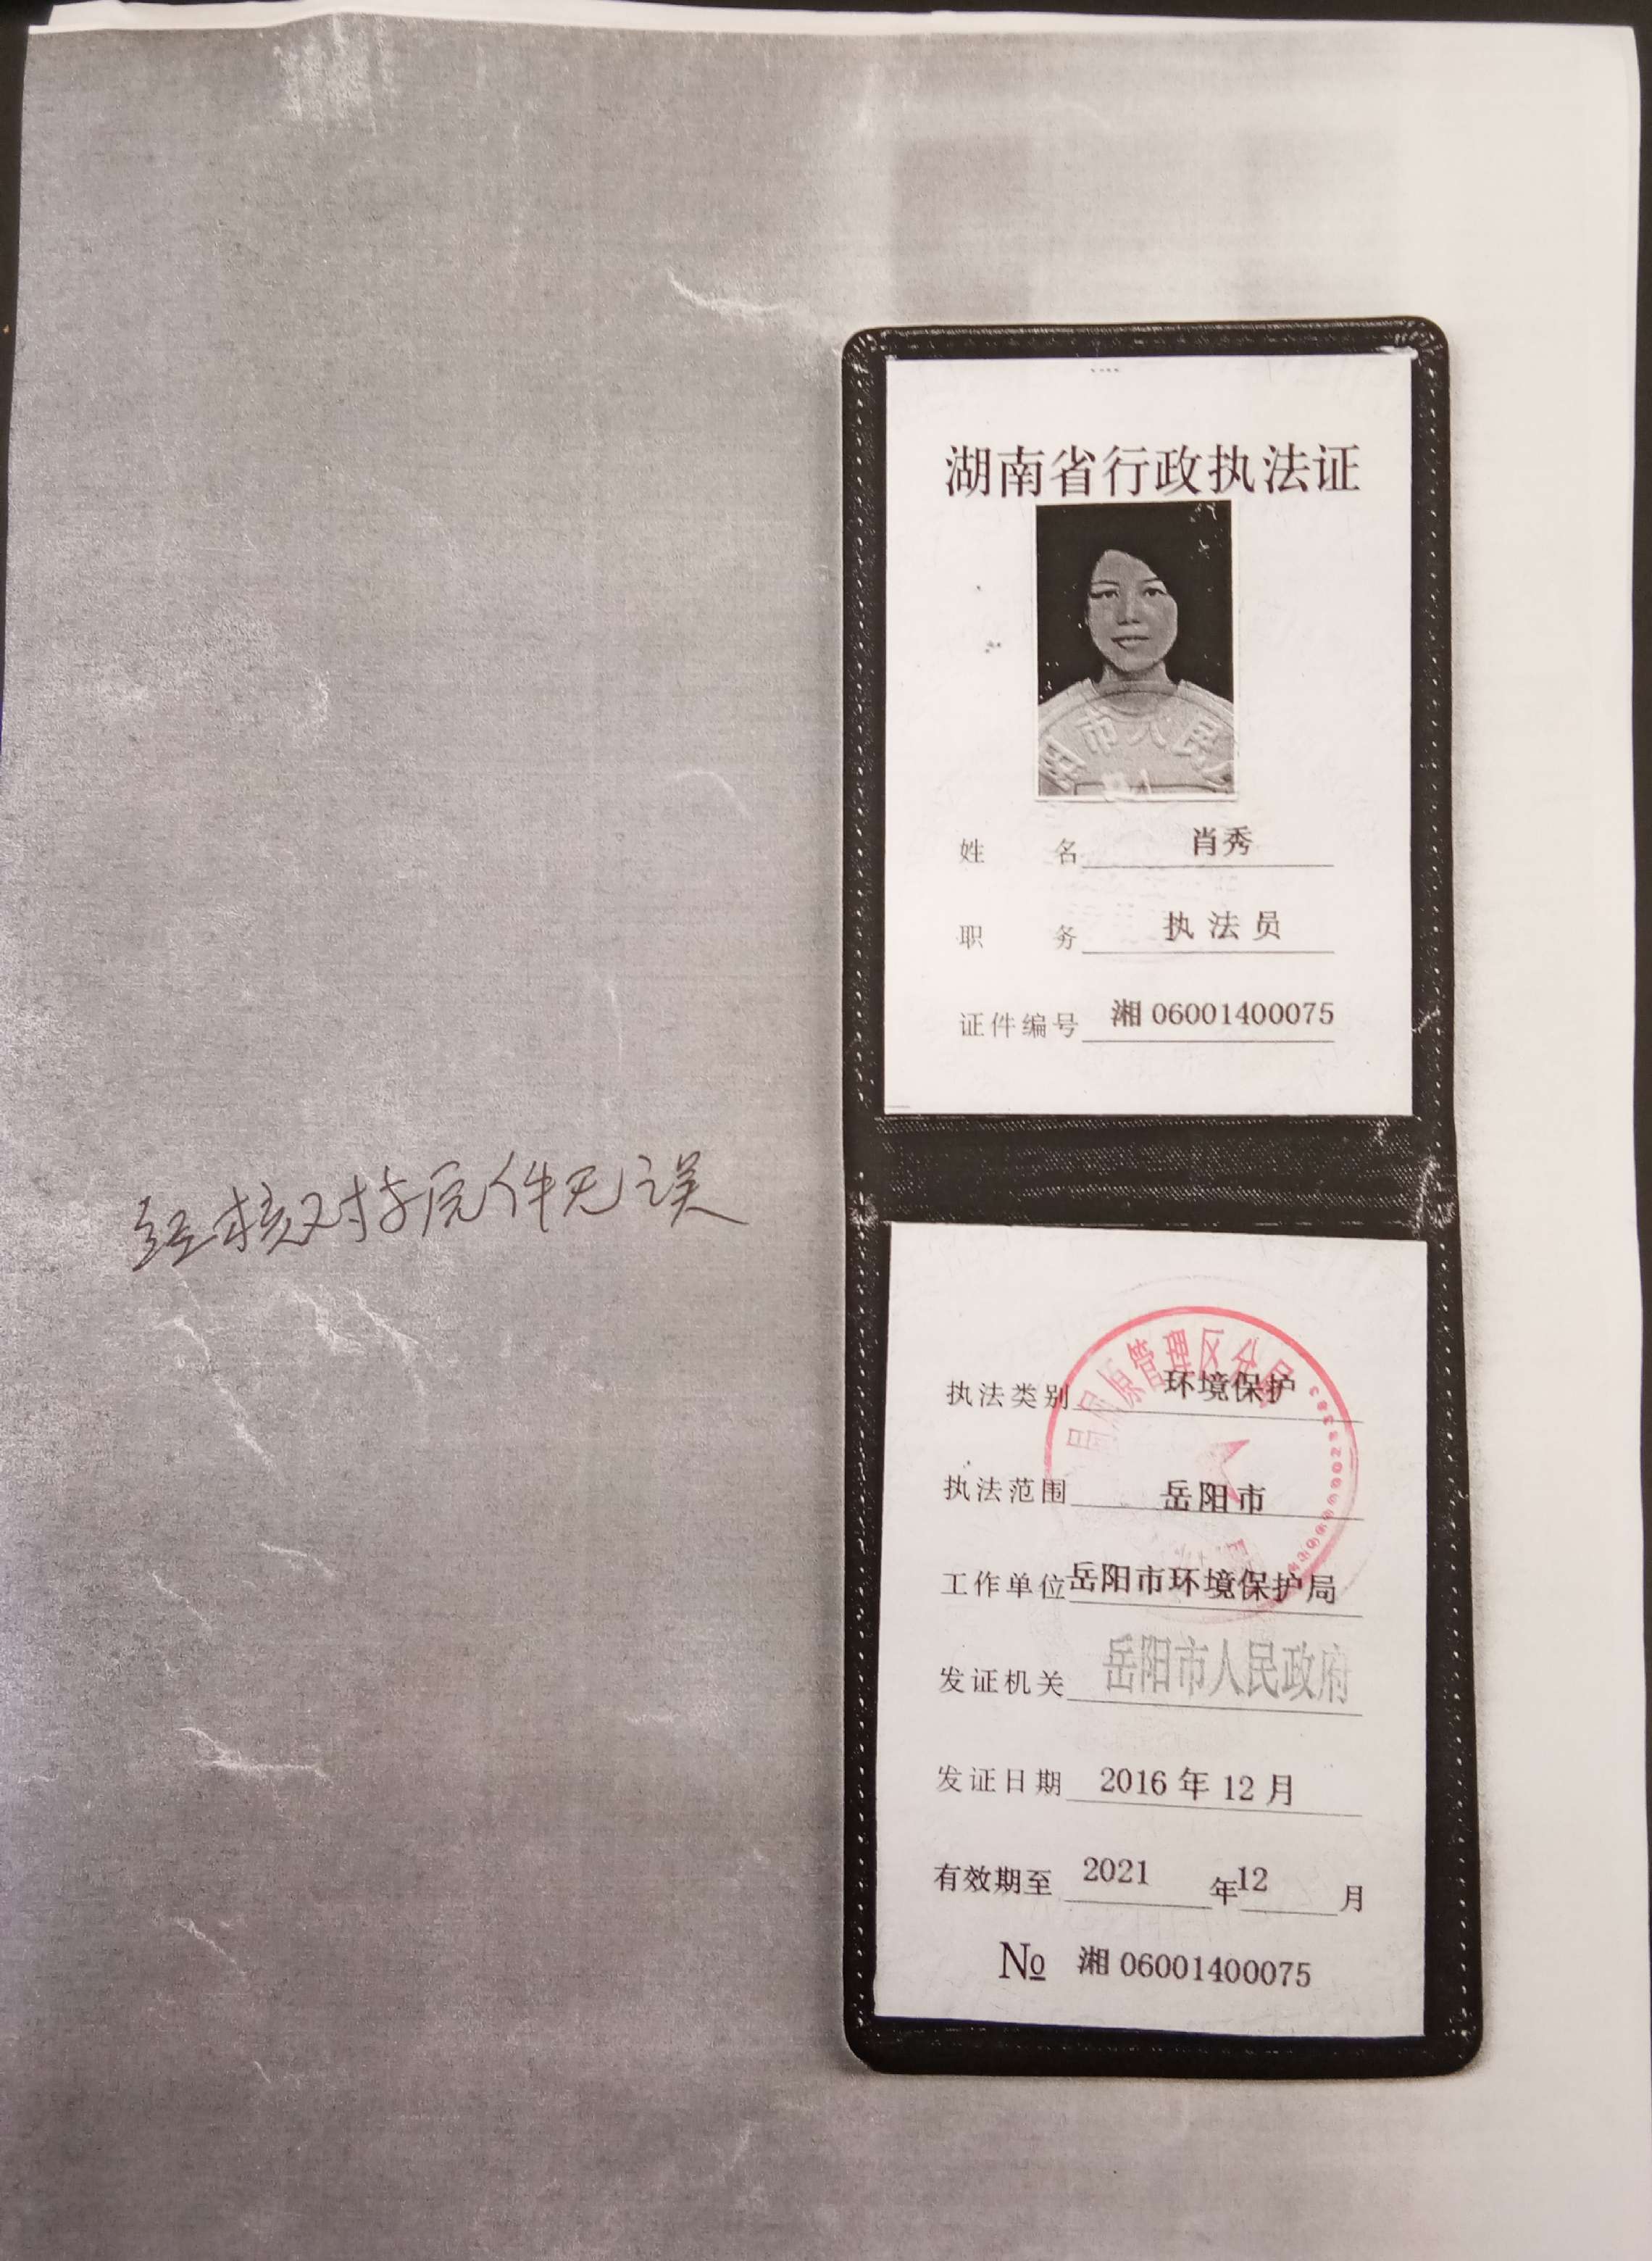 湖南省行政执法证
市人民
姓名 肖秀
职务 执法员
证件编号 湘06001400075
经核对与原件无误
屈原管理区分局
执法类别 环境保护
执法范围 岳阳市
工作单位 岳阳市环境保护局
发证机关 岳阳市人民政府
发证日期 2016年12月
有效期至 2021年12月
№ 湘06001400075